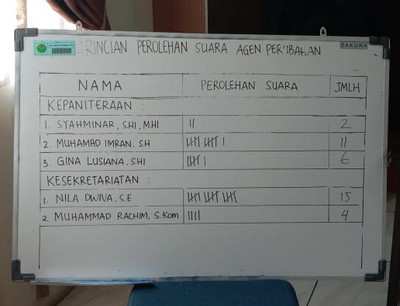 RINCIAN PEROLEHAN SUARA AGEN PERUBAHAN
SAKURA
NAMA PEROLEHAN SUARA JMLH
KEPANITERAAN :
1. SYAHMINAR, SHI, MHI 2
2. MUHAMAD IMRAN, SH 11
3. GINA LUSIANA, SHI 6
KESEKRETARIATAN :
1. NILA DWIVA, S.E 15
2. MUHAMMAD RACHIM, S.Kom 4